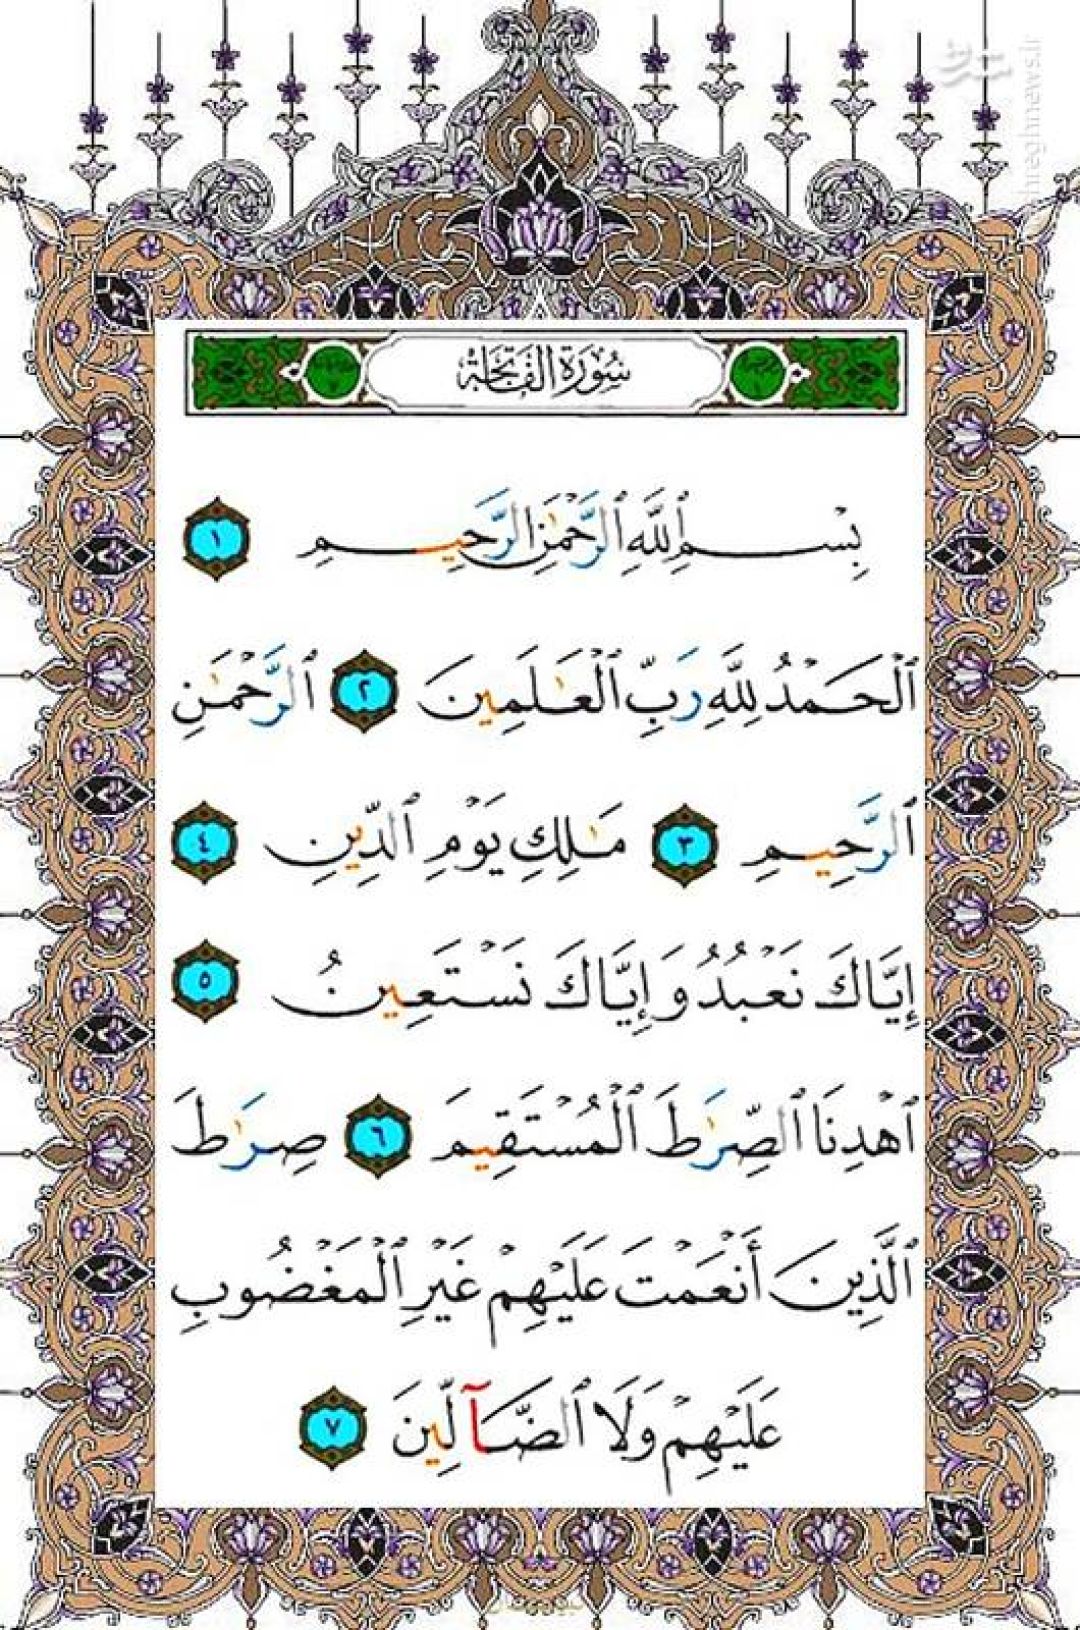 شرق
mashreghnews.ir
سُورَةُ الفَاتِحَةِ
بِسْمِ ٱللَّهِ ٱلرَّحْمَٰنِ ٱلرَّحِيمِ ١
ٱلْحَمْدُ لِلَّهِ رَبِّ ٱلْعَٰلَمِينَ ٢ ٱلرَّحْمَٰنِ
ٱلرَّحِيمِ ٣ مَٰلِكِ يَوْمِ ٱلدِّينِ ٤
إِيَّاكَ نَعْبُدُ وَإِيَّاكَ نَسْتَعِينُ ٥
ٱهْدِنَا ٱلصِّرَٰطَ ٱلْمُسْتَقِيمَ ٦ صِرَٰطَ
ٱلَّذِينَ أَنْعَمْتَ عَلَيْهِمْ غَيْرِ ٱلْمَغْضُوبِ
عَلَيْهِمْ وَلَا ٱلضَّآلِّينَ ٧